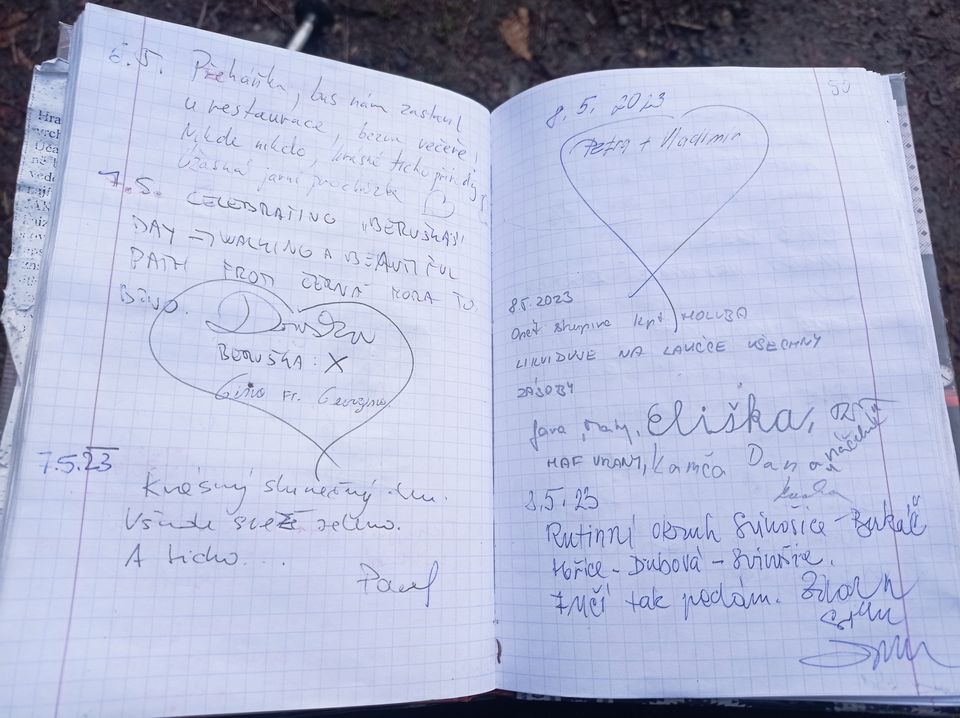 6.5. Přeháňka, bus nám zastavil
u restaurace, bezva večeře,
Nikde nikdo, krásné ticho přírody
Úžasná jarní procházka
7.5. CELEBRATING „BERUŠKAS"
DAY → WALKING A BEAUTIFUL
PATH FROM ČERNÁ HORA TO
BRNO.
BERUŠKA: X
Gino Fr. Georgino
7.5.23
Krásný slunečný den.
Všude svěží zeleno.
A ticho...
Pavel
50
8.5. 2023
Petra + Vladimir
8.5.2023
Opět skupina kpt HOLUBA
LIKVIDUJE NA LAVIČCE VŠECHNY
ZÁSOBY
Jana, Maty, Eliška,
Kamča Dana
náčelník
8.5.23
Rutinní okruh Svinošice - Bukáč
Hořice - Dubová - Svinošice.
7MČÍ tak podám.